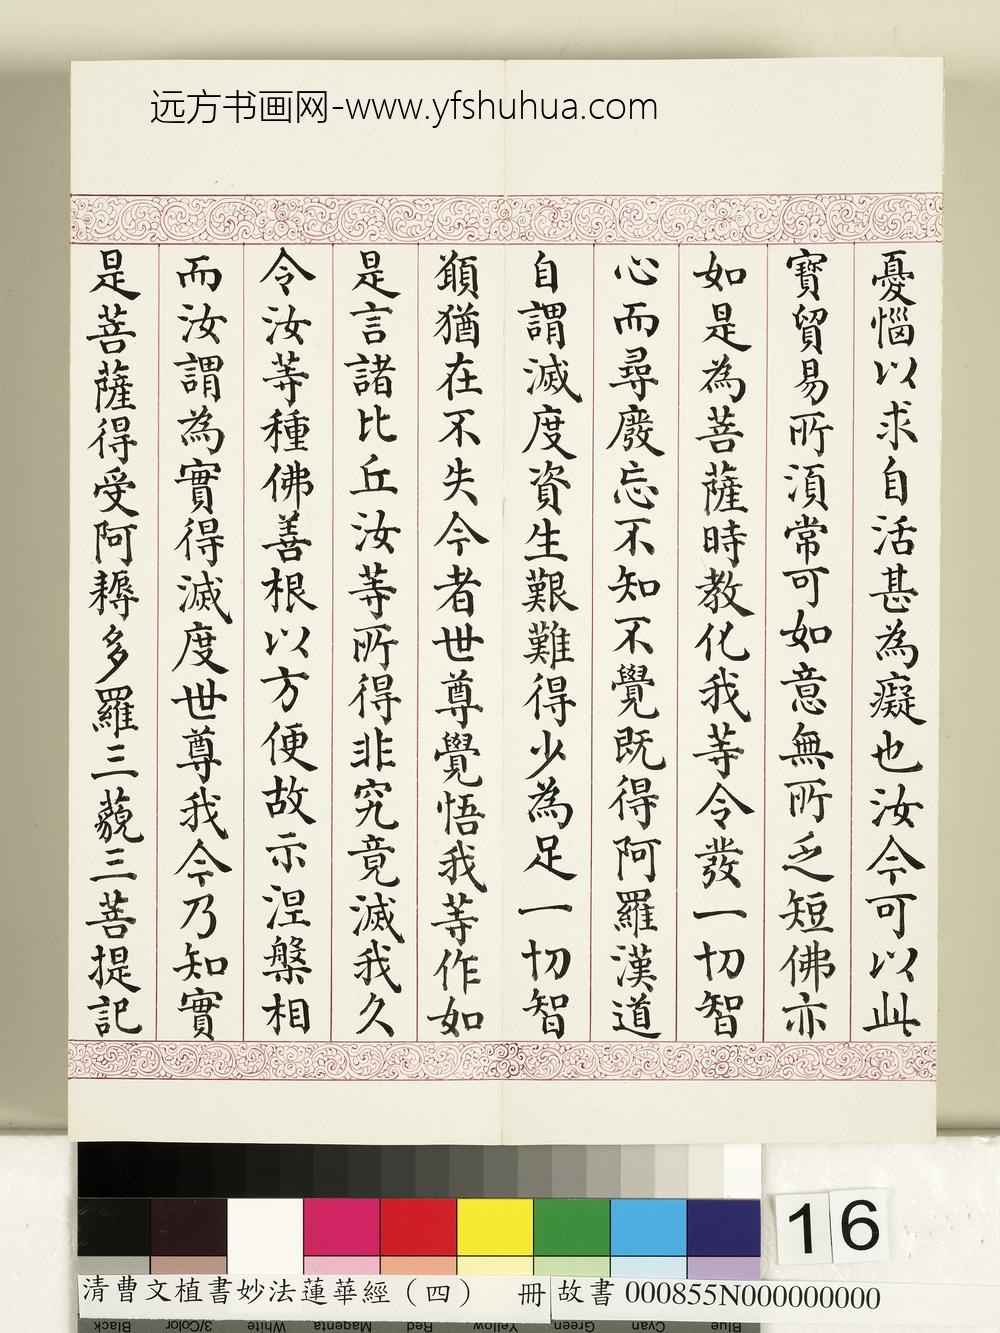 远方书画网-www.yfshuhua.com
憂惱以求自活甚為癡也汝今可以此
寶貿易所須常可如意無所乏短佛亦
如是為菩薩時教化我等令發一切智
心而尋廢忘不知不覺既得阿羅漢道
自謂滅度資生艱難得少為足一切智
願猶在不失今者世尊覺悟我等作如
是言諸比丘汝等所得非究竟滅我久
令汝等種佛善根以方便故示涅槃相
而汝謂為實得滅度世尊我今乃知實
是菩薩得受阿耨多羅三藐三菩提記
16
清曹文植書妙法蓮華經（四） 冊
故書 000855N000000000
Black 3/Color White Magenta Red Yellow Green Cyan Blue